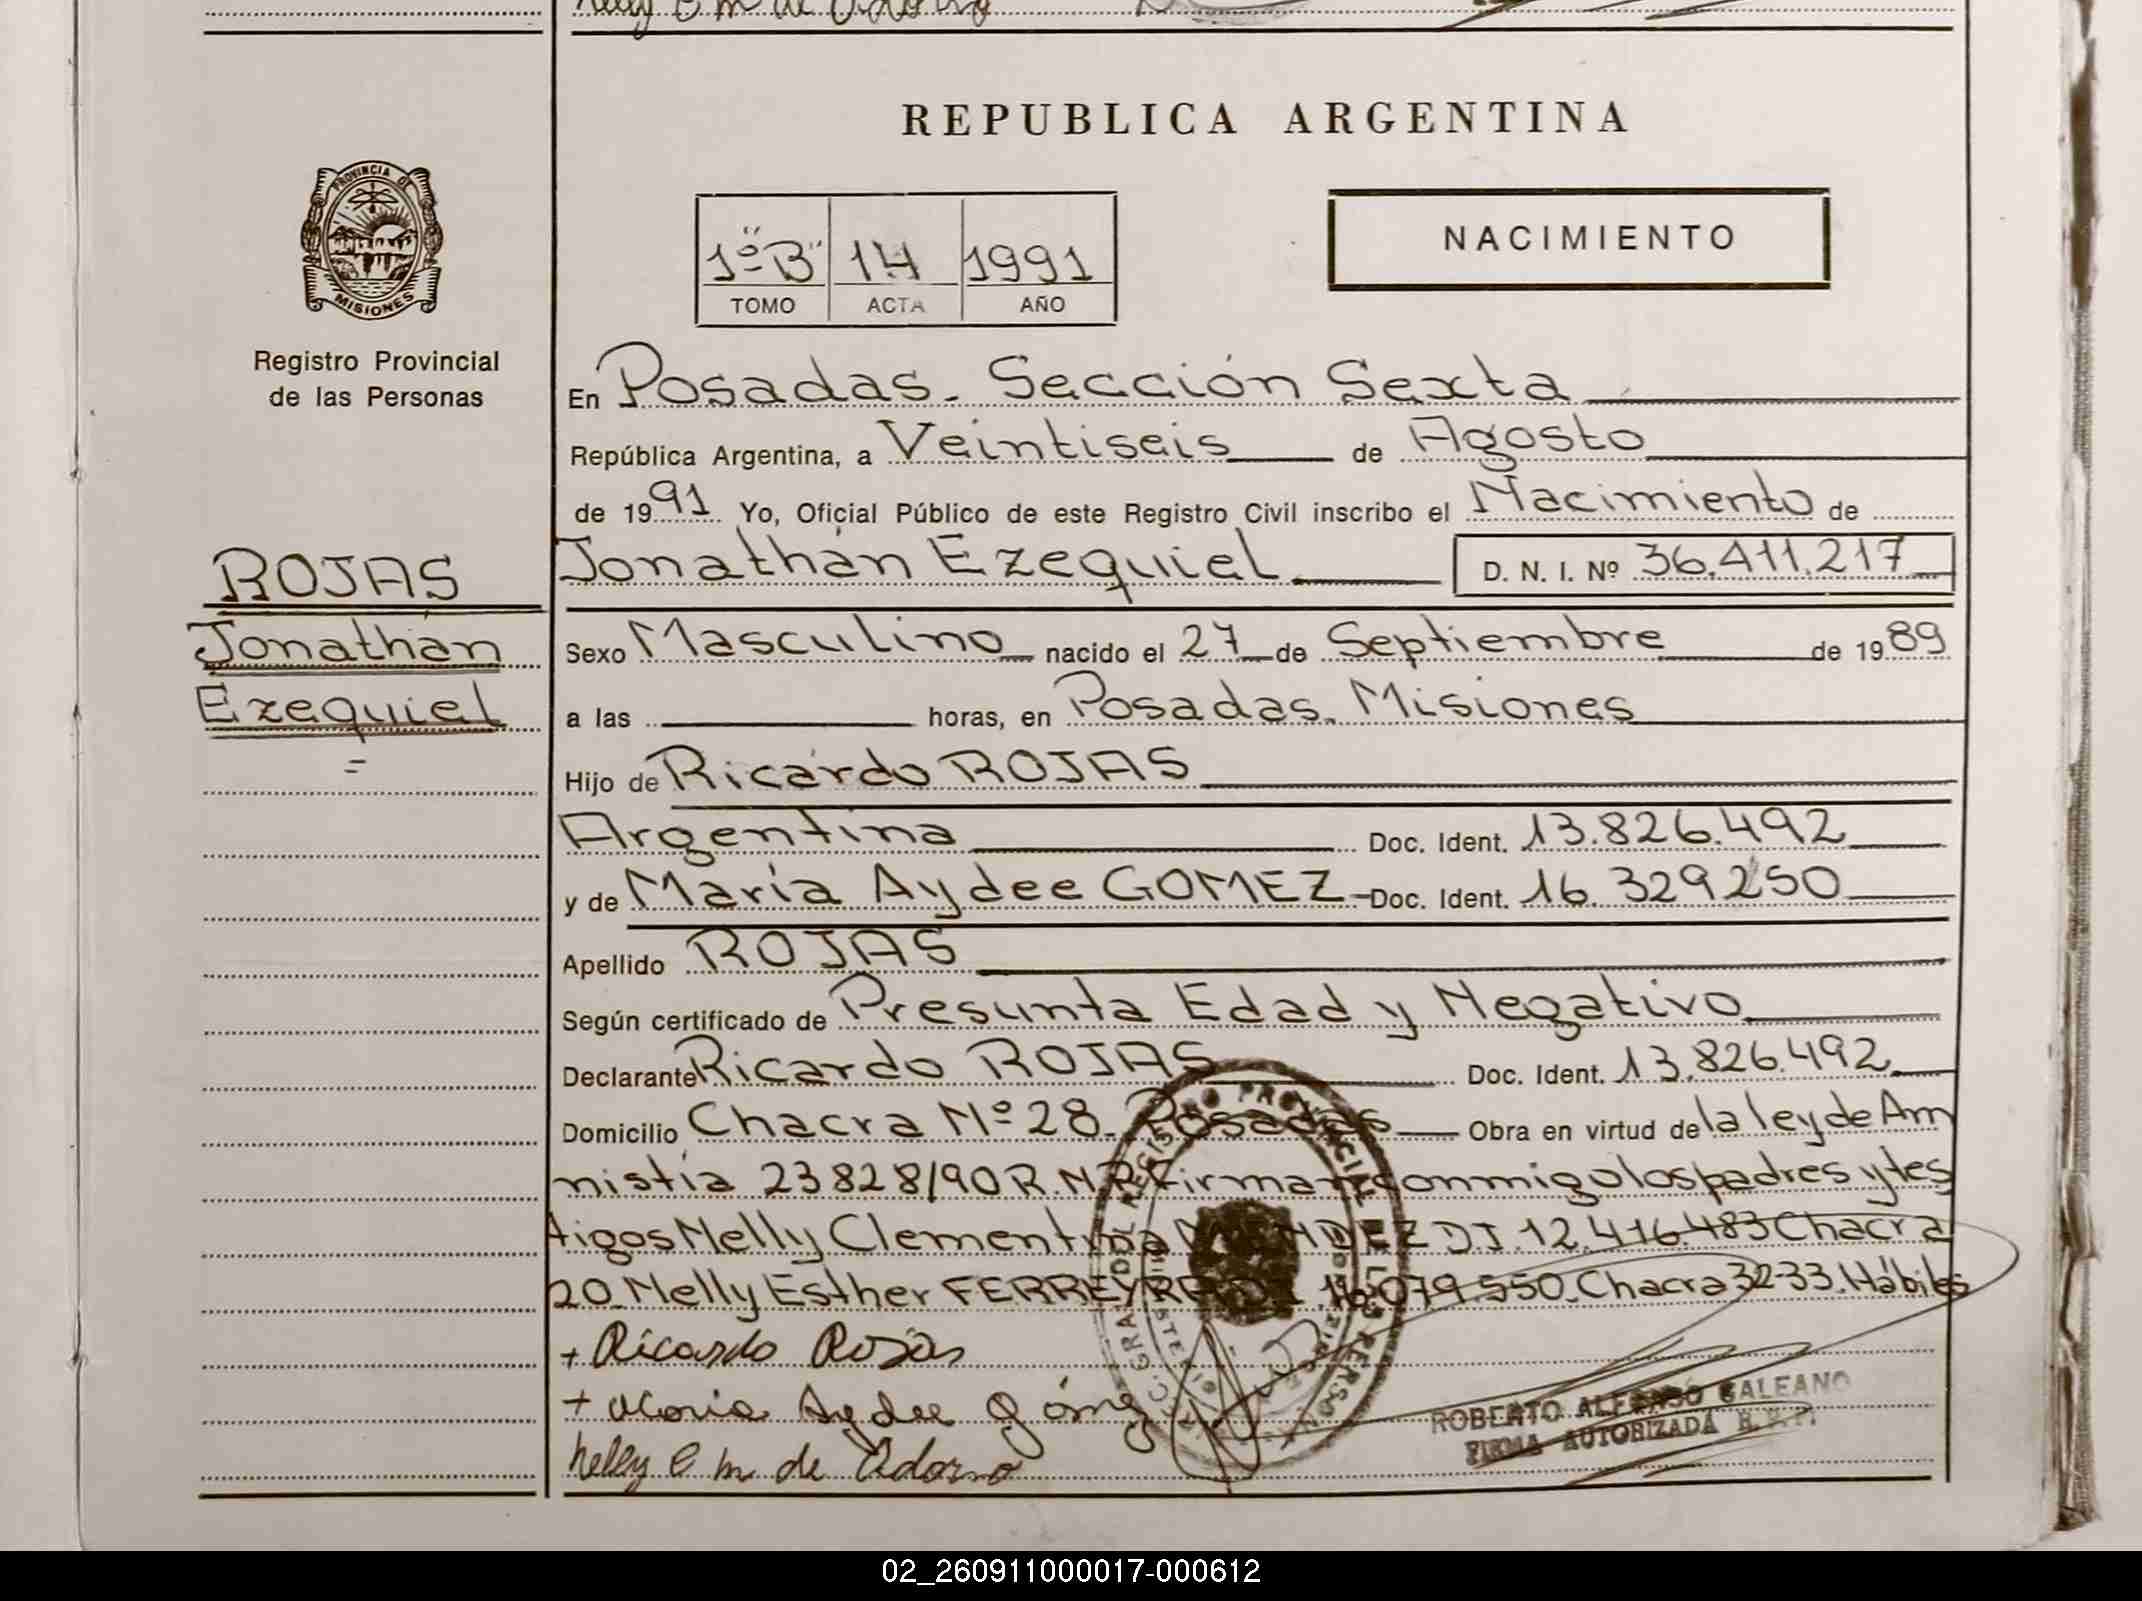 REPUBLICA ARGENTINA
PROVINCIA DE
MISIONES
Registro Provincial
de las Personas
1º "B" 14 1991
TOMO ACTA AÑO
NACIMIENTO
En Posadas. Sección Sexta
República Argentina, a Veintiseis de Agosto
de 1991 Yo, Oficial Público de este Registro Civil inscribo el Nacimiento de
ROJAS
Jonathán
Ezequiel
=
Jonathán Ezequiel D. N. I. Nº 36.411.217
Sexo Masculino nacido el 27 de Septiembre de 1989
a las horas, en Posadas. Misiones
Hijo de Ricardo ROJAS
Argentina Doc. Ident. 13.826.492
y de María Aydee GOMEZ Doc. Ident. 16.329250
Apellido ROJAS
Según certificado de Presunta Edad y Negativo
Declarante Ricardo ROJAS Doc. Ident. 13.826.492
Domicilio Chacra Nº 28. Posadas Obra en virtud de la ley de Am
nistía 23828/90 R.N.P. Firman conmigo los padres y tes
tigos Nelly Clementina MENDEZ D.I. 12.416.483 Chacra
20. Nelly Esther FERREYRA D.I. 079.550. Chacra 32-33. Hábiles
+ Ricardo Rojas
+ Maria Aydee Gómez
Nelly C M de Adorno
ROBERTO ALFONSO GALEANO
FIRMA AUTORIZADA R.P.P.
02_260911000017-000612